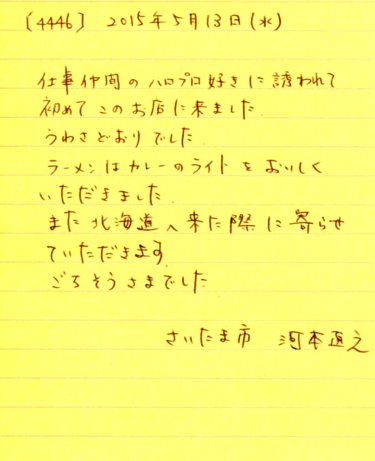 〔4446〕 2015年5月13日(水)
仕事仲間のハロプロ好きに誘われて
初めてこのお店に来ました.
うわさどおりでした.
ラーメンはカレーのライトをおいしく
いただきました.
また北海道へ来た際に寄らせ
ていただきます.
ごちそうさまでした
さいたま市 河本直之